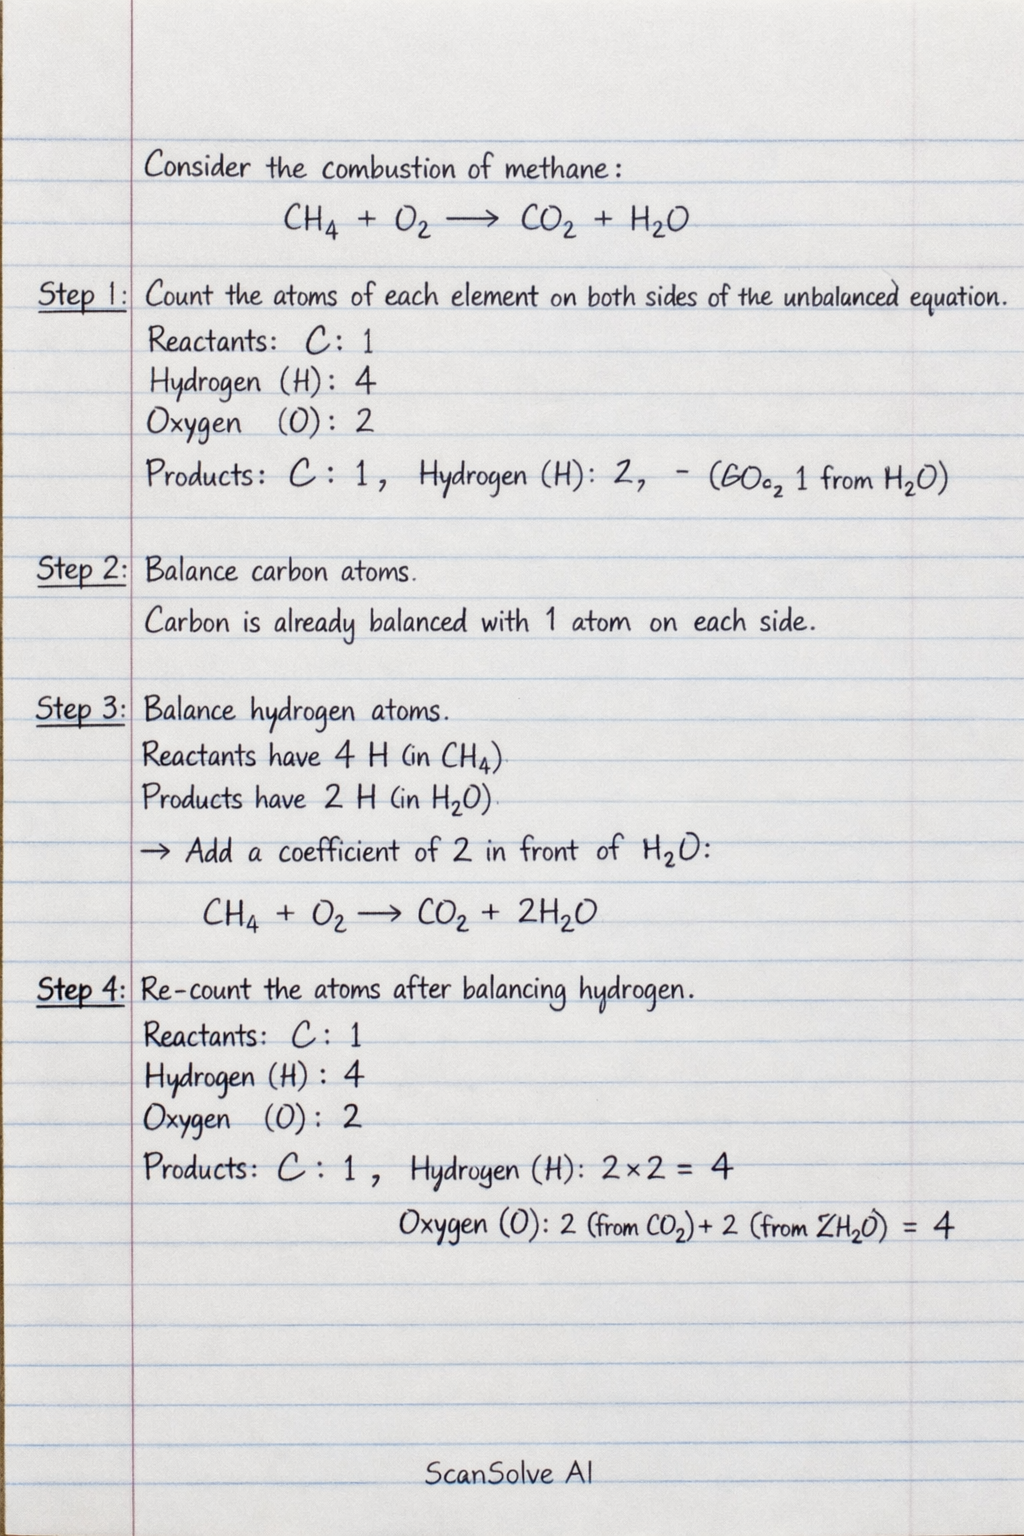 Consider the combustion of methane:
CH₄ + O₂ ⟶ CO₂ + H₂O
Step 1: Count the atoms of each element on both sides of the unbalanced equation.
Reactants: C: 1
Hydrogen (H): 4
Oxygen (O): 2
Products: C: 1, Hydrogen (H): 2, - ( 1 from H₂O)
Step 2: Balance carbon atoms.
Carbon is already balanced with 1 atom on each side.
Step 3: Balance hydrogen atoms.
Reactants have 4 H (in CH₄).
Products have 2 H (in H₂O).
→ Add a coefficient of 2 in front of H₂O:
CH₄ + O₂ ⟶ CO₂ + 2H₂O
Step 4: Re-count the atoms after balancing hydrogen.
Reactants: C: 1
Hydrogen (H): 4
Oxygen (O): 2
Products: C: 1, Hydrogen (H): 2×2 = 4
Oxygen (O): 2 (from CO₂)+ 2 (from ZH₂O) = 4
ScanSolve AI